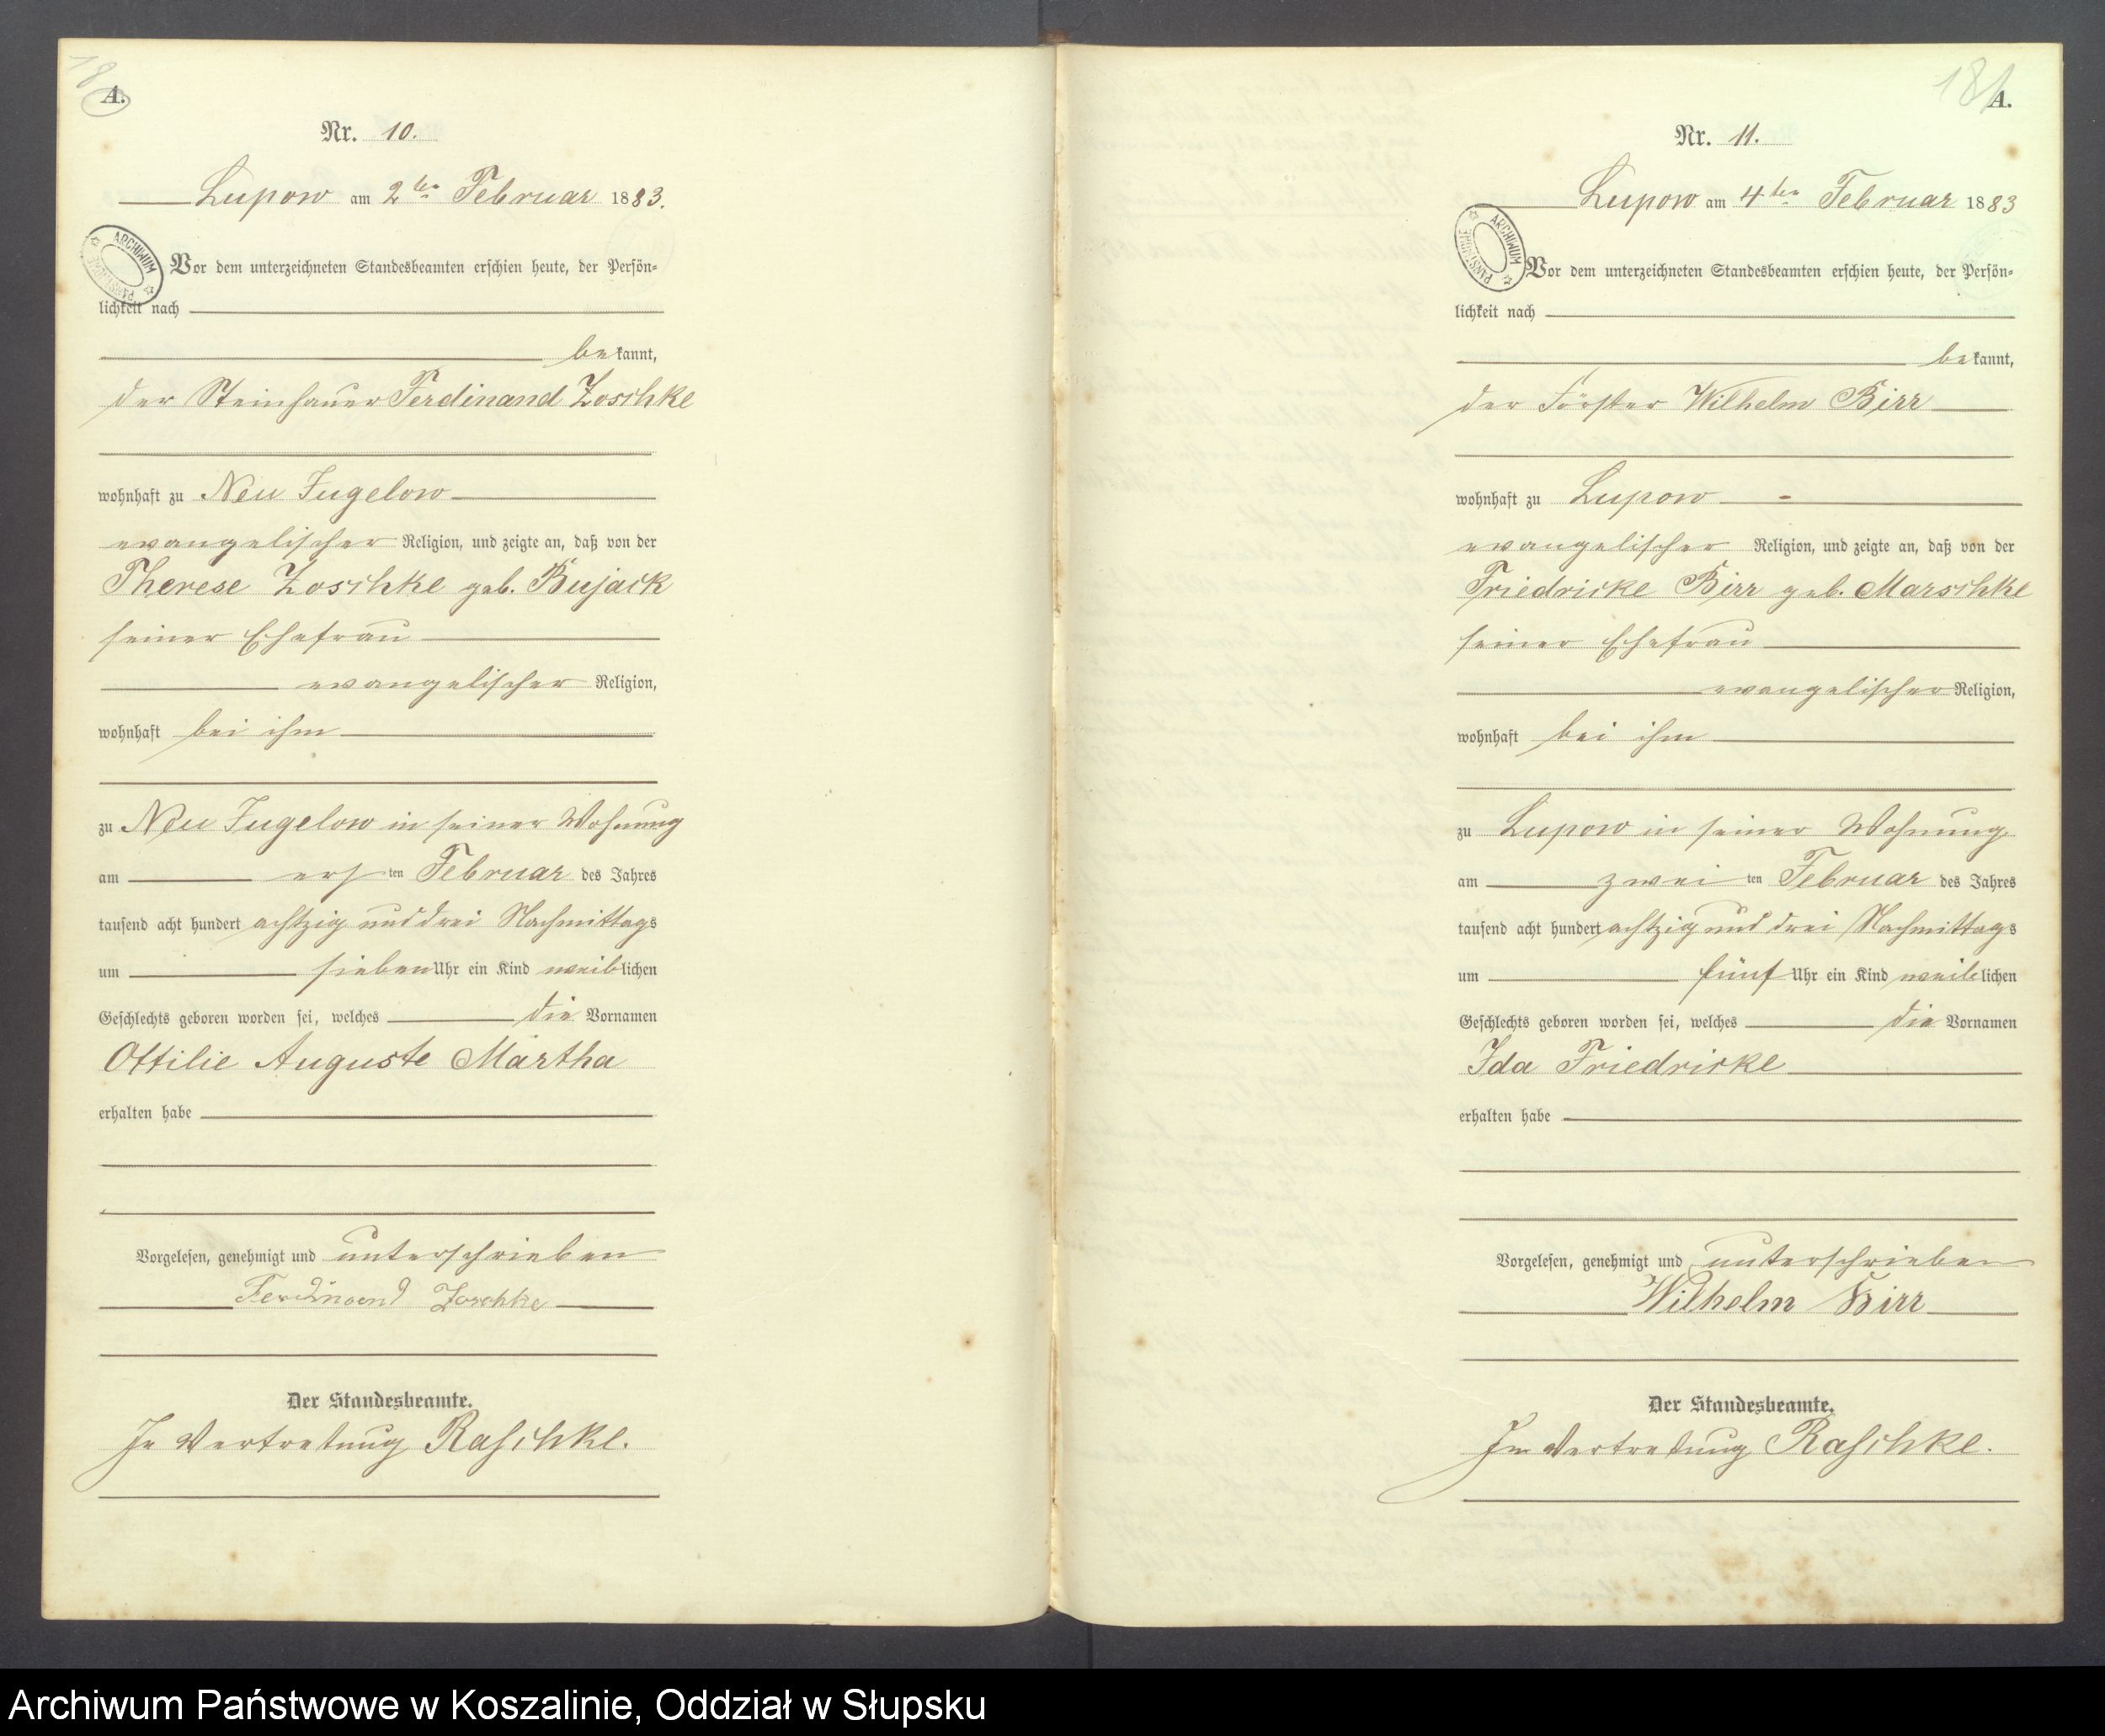 18
A.
Nr. 10.
Lupow am 2ten Februar 1883.
ARCHIWUM PAŃSTWOWE
Vor dem unterzeichneten Standesbeamten erschien heute, der Persön=
lichkeit nach
bekannt,
der Steinhauer Ferdinand Zoschke
wohnhaft zu Neu Jugelow
evangelischer Religion, und zeigte an, daß von der
Therese Zoschke geb. Bujack
seiner Ehefrau
evangelischer Religion,
wohnhaft bei ihm
zu Neu Jugelow in seiner Wohnung
am ersten Februar des Jahres
tausend acht hundert achtzig und drei Nachmittags
um sieben Uhr ein Kind weiblichen
Geschlechts geboren worden sei, welches die Vornamen
Ottilie Auguste Martha
erhalten habe
Vorgelesen, genehmigt und unterschrieben
Ferdinand Zoschke
Der Standesbeamte.
In Vertretung Raschke.
181
A.
Nr. 11.
Lupow am 4ten Februar 1883
ARCHIWUM PAŃSTWOWE
Vor dem unterzeichneten Standesbeamten erschien heute, der Persön=
lichkeit nach
bekannt,
der Förster Wilhelm Birr
wohnhaft zu Lupow
evangelischer Religion, und zeigte an, daß von der
Friedricke Birr geb. Marschke
seiner Ehefrau
evangelischer Religion,
wohnhaft bei ihm
zu Lupow in seiner Wohnung
am zweiten Februar des Jahres
tausend acht hundert achtzig und drei Nachmittags
um fünf Uhr ein Kind weiblichen
Geschlechts geboren worden sei, welches die Vornamen
Ida Friedricke
erhalten habe
Vorgelesen, genehmigt und unterschrieben
Wilhelm Birr
Der Standesbeamte.
In Vertretung Raschke.
Archiwum Państwowe w Koszalinie, Oddział w Słupsku